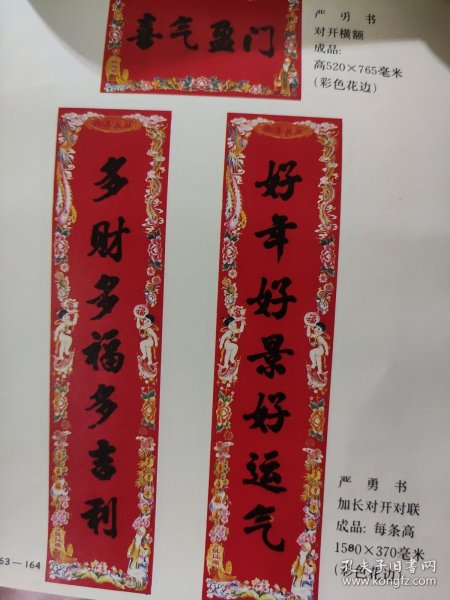 喜气盈门
严勇书
对开横额
成品:
高520×765毫米
(彩色花边)
好年好景好运气
多财多福多吉利
严勇书
加长对开对联
成品: 每条高
1580×370毫米
(彩色花边)
63—164
孔夫子旧书网
kongfz.com